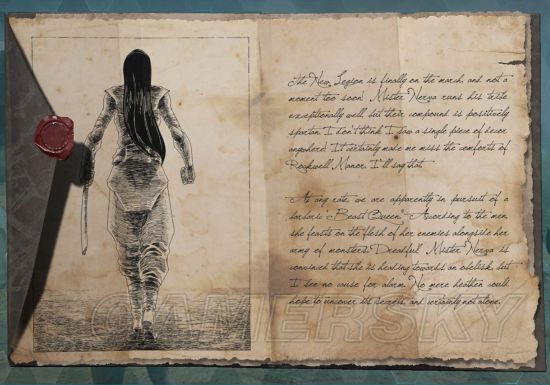 The New Legion is finally on the march, and not a
moment too soon! Mister Nerva runs his tribe
exceptionally well, but their compound is positively
spartan. I don't think I saw a single piece of decor
anywhere! It certainly made me miss the comforts of
Rockwell Manor, I'll say that.
At any rate, we are apparently in pursuit of a
barbaric "Beast Queen." According to the men,
she feasts on the flesh of her enemies alongside her
army of monsters. Dreadful. Mister Nerva is
convinced that she is heading towards an obelisk, but
I see no cause for alarm. No mere heathen could
hope to uncover its secrets, and certainly not alone.
GAMERSKY